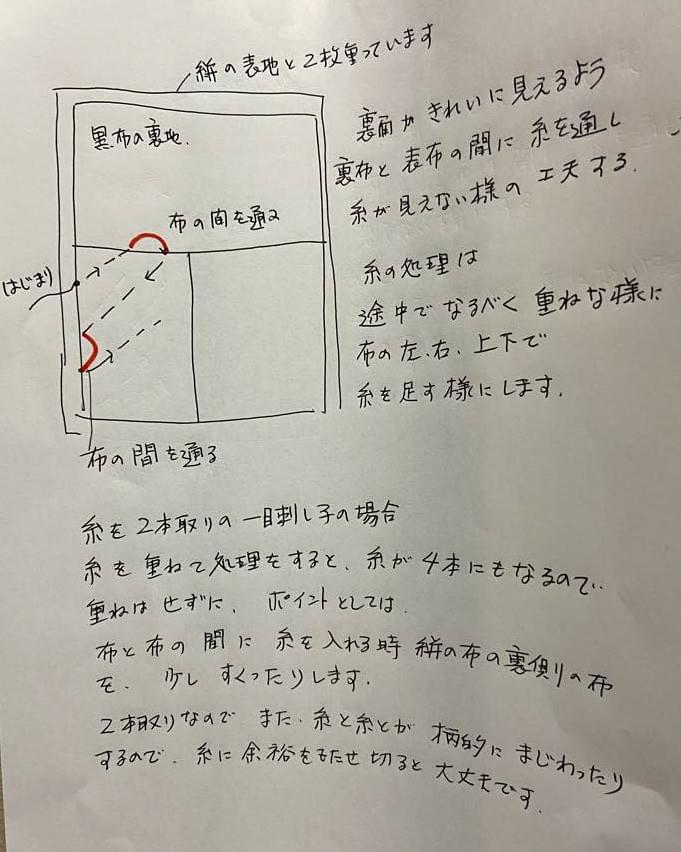 絣の表地と2枚重っています
黒布の裏地.
布の間を通る
はじまり
布の間を通る
裏面がきれいに見えるよう
裏布と表布の間に糸を通し
糸が見えない様の工夫する.
糸の処理は
途中でなるべく重ねな様に
布の左、右、上下で
糸を足す様にします.
糸を2本取りの一目刺し子の場合
糸を重ねて処理をすると、糸が4本にもなるので..
重ねはせずに、ポイントとしては.
布と布の間に糸を入れる時絣の布の裏側の布
を、少しすくったりします.
2本取りなので、また、糸と糸とが柄的にまじわったり
するので、糸に余裕をもたせ切ると大丈夫です.